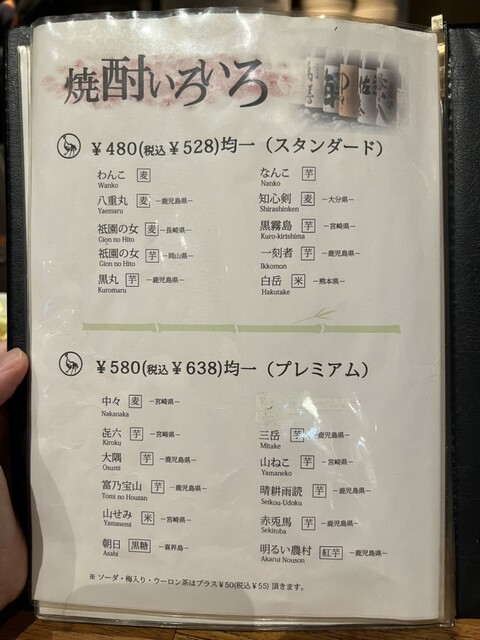 焼酎いろいろ
￥480(税込￥528)均一（スタンダード）
わんこ 麦
Wanko
八重丸 麦 －鹿児島県－
Yaemaru
祇園の女 麦 －長崎県－
Gion no Hito
祇園の女 芋 －岡山県－
Gion no Hito
黒丸 芋 －鹿児島県－
Kuromaru
なんこ 芋
Nanko
知心剣 麦 －大分県－
Shirashinken
黒霧島 芋 －宮崎県－
Kuro-kirishima
一刻者 芋 －鹿児島県－
Ikkomon
白岳 米 －熊本県－
Hakutake
￥580(税込￥638)均一（プレミアム）
中々 麦 －宮崎県－
Nakanaka
㐂六 芋 －宮崎県－
Kiroku
大隅 芋 －鹿児島県－
Osumi
富乃宝山 芋 －鹿児島県－
Tomi no Houzan
山せみ 米 －宮崎県－
Yamasemi
朝日 黒糖 －喜界島－
Asahi
三岳 芋 －鹿児島県－
Mitake
山ねこ 芋 －宮崎県－
Yamaneko
晴耕雨読 芋 －鹿児島県－
Seikou-Udoku
赤兎馬 芋 －鹿児島県－
Sekitoba
明るい農村 紅芋 －鹿児島県－
Akarui Nouson
※ ソーダ・梅入り・ウーロン茶はプラス￥50(税込￥55) 頂きます。